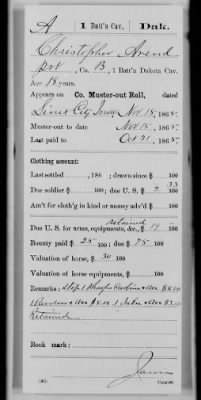 A 1 Batt'n Cav. Dak.
Christopher Arend
Pvt, Co. B, 1 Batt'n Dakota Cav.
Age 18 years.
Appears on Co. Muster-out Roll, dated
Sioux City Iowa Nov 15, 1865.
Muster-out to date Nov 15, 1865.
Last paid to Oct 31, 1865.
Clothing account:
Last settled , 186 ; drawn since $ 100
Due soldier $ 100; due U. S. $ 2 33 100
Am't for cloth'g in kind or money adv'd $ 100
retained
Due U. S. for arms, equipments, &c., $ 19 100
Bounty paid $ 25 100; due $ 75 100
Valuation of horse, $ 30 100
Valuation of horse equipments, $ 100
Remarks: Stop 1 Sharps Carbine &c $8.00
1 Revolver &c $8.00 1 Sabre &c $3.00
Retained
Book mark:
Copyist.